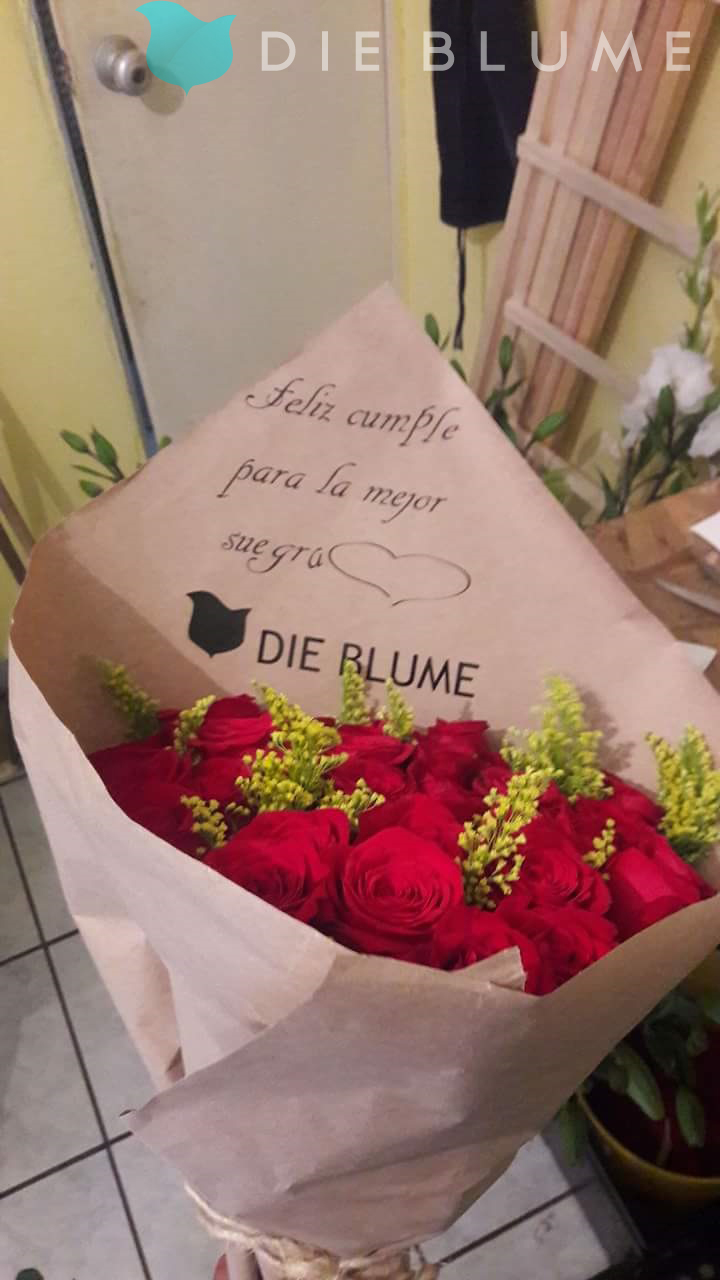 DIE BLUME
Feliz cumple
para la mejor
suegra
DIE BLUME